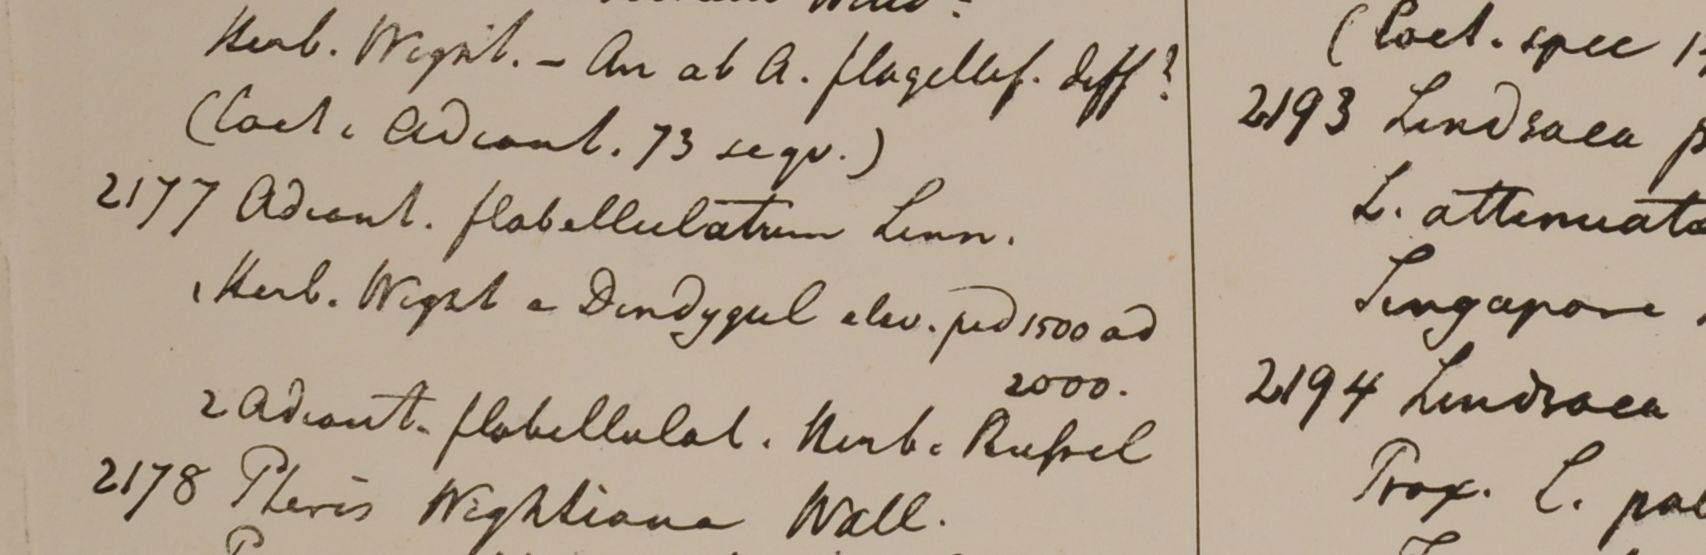 Herb. Wight. – An ab A. flagellif. diff?
(Caet. Adiant. 73 seqv.)
2177 Adiant. flabellulatum Linn.
1 Herb. Wight e Dindygul elev. ped 1500 ad
2000.
2 Adiant. flabellulat. Herb. Russel
2178 Pteris Wightiana Wall.
(Caet. spec
2193 Lindsaea
L. attenuata
Singapore
2194 Lindsaea
Prox. L.